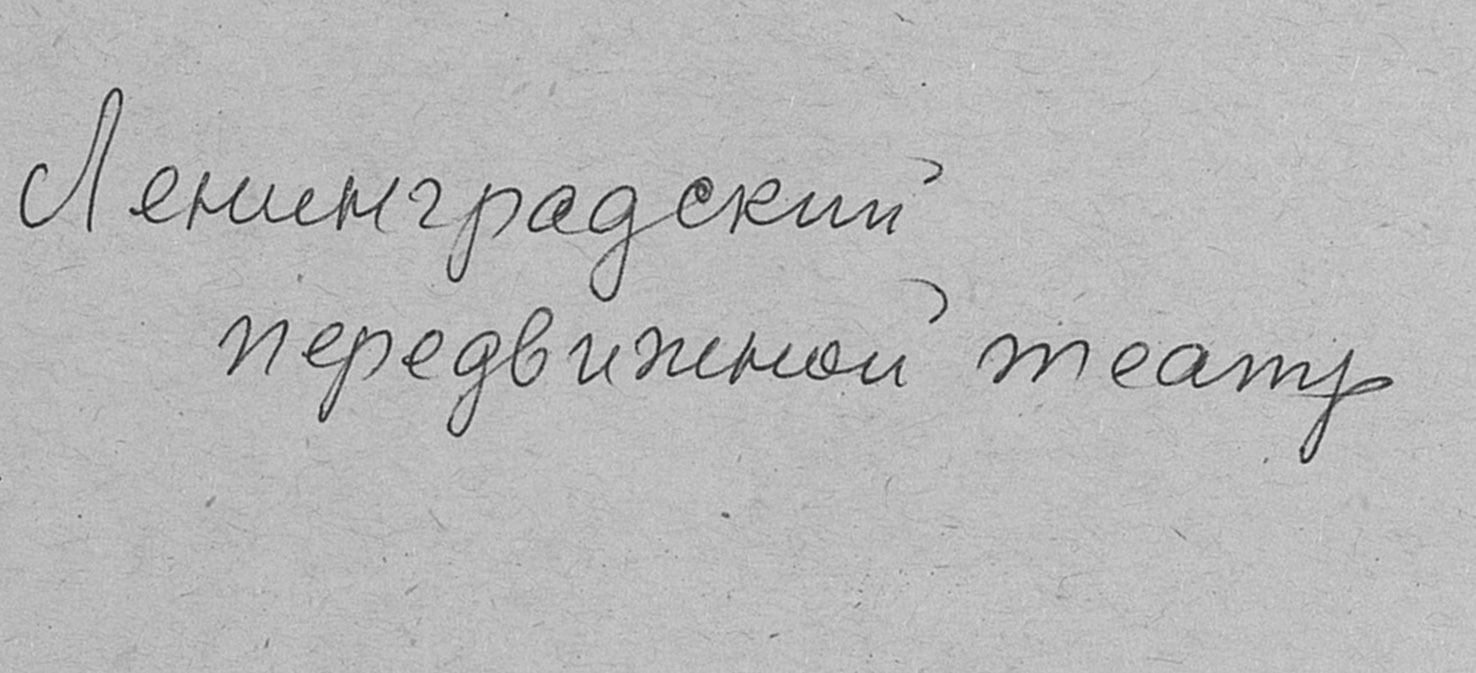 Ленинградский
передвижной театр